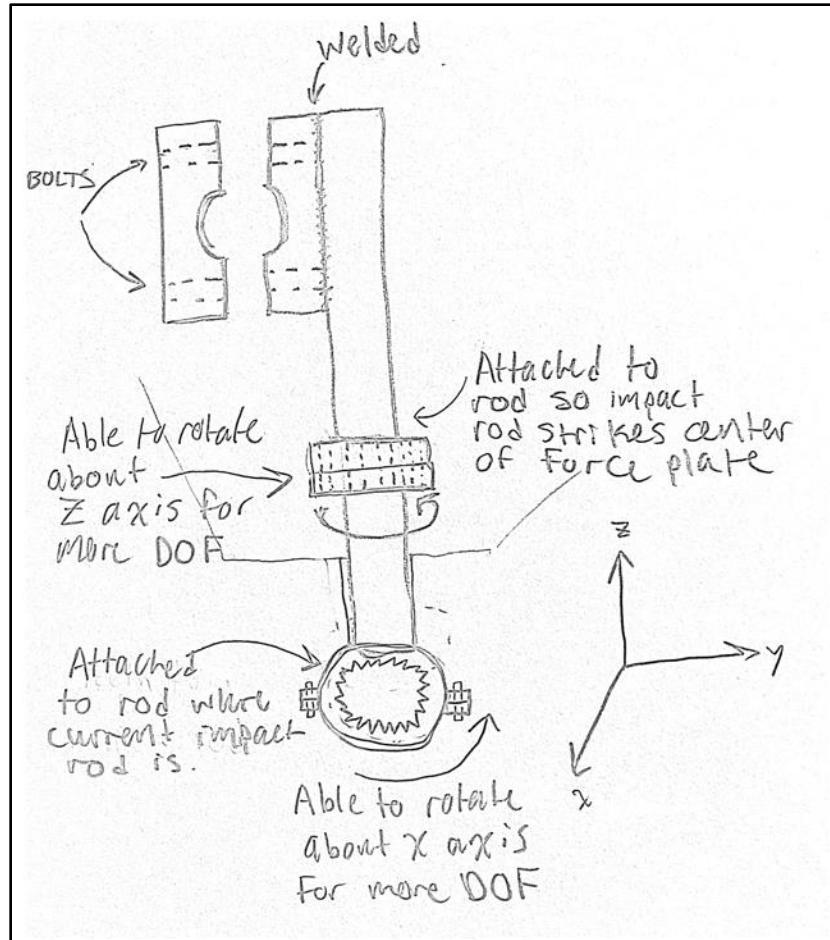 Welded
BOLTS
Attached to
rod so impact
rod strikes center
of force plate
Able to rotate
about
Z axis for
more DOF
z
y
x
Attached
to rod where
current impact
rod is.
Able to rotate
about x axis
for more DOF